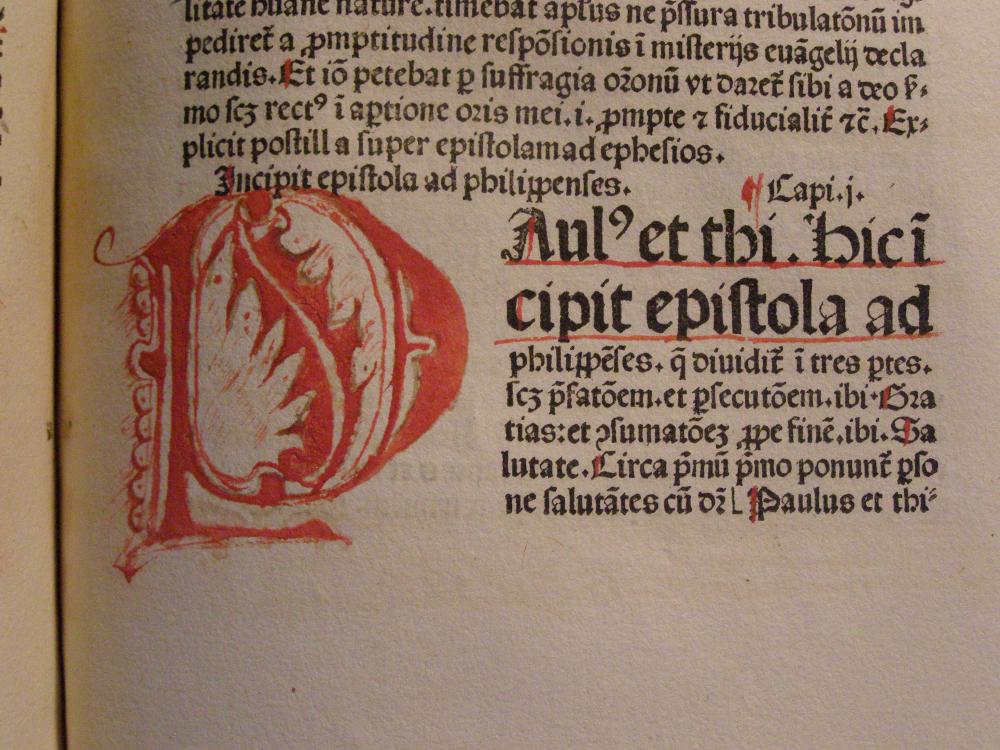 litate huane nature.timebat aptus ne p̄ssura tribulatōnū im
pediret̄ a ꝓmptitudine respōsionis ī misterijs euāgelij decla
randis. Et iō petebat ꝑ suffragia oꝛonū vt daret̄ sibi a deo
mo scꝫ rectꝰ ī aptione oris mei.i. ꝓmpte ⁊ fiducialit̄ ⁊c̄. Ex⸗
plicit postilla super epistolam ad ephesios.
Incipit epistola ad philippenses. Capi.j.
PAulꝰ et thi. Hic ī
cipit epistola ad
philippēses. q̄ diuidit̄ ī tres ꝑtes.
scꝫ p̄fatōem.et ꝓsecutōem.ibi. Gra
tias:et ꝯsumatōeꝫ ꝓpe finē.ibi. Sa
lutate. Circa p̄mū p̄mo ponunt̄ ꝑso
ne salutātes cū dꝛ Paulus et thi⸗